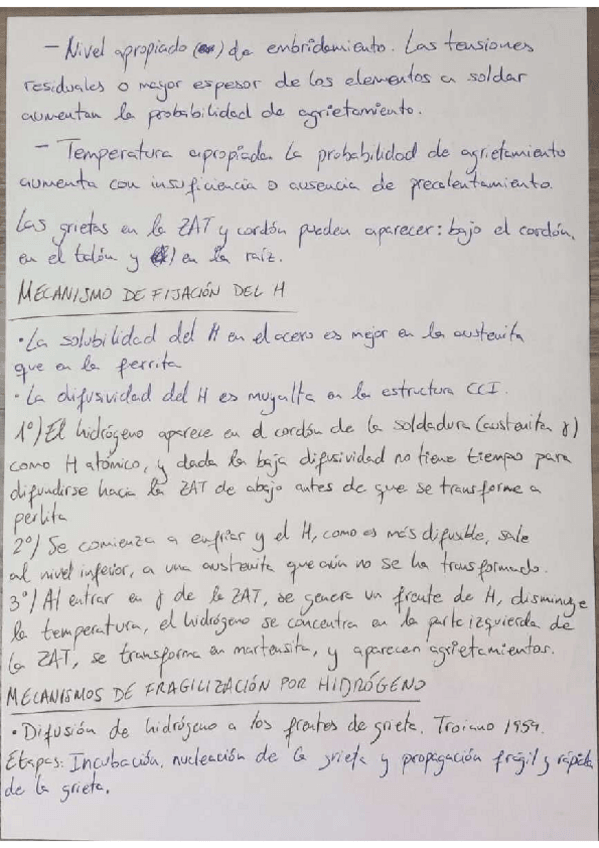 - Nivel apropiado de embridamiento. Las tensiones
residuales o mayor espesor de los elementos a soldar
aumentan la probabilidad de agrietamiento.
- Temperatura apropiada. La probabilidad de agrietamiento
aumenta con insuficiencia o ausencia de precalentamiento.
Las grietas en la ZAT y cordón pueden aparecer: bajo el cordón,
en el talón y en la raíz.
MECANISMO DE FIJACIÓN DEL H
• La solubilidad del H en el acero es mejor en la austenita
que en la ferrita
• La difusividad del H es muy alta en la estructura CCI.
1º) El hidrógeno aparece en el cordón de la soldadura (austenita γ)
como H atómico, y dada la baja difusividad no tiene tiempo para
difundirse hacia la ZAT de abajo antes de que se transforme a
perlita
2º) Se comienza a enfriar y el H, como es más difusible, sale
al nivel inferior, a una austenita que aún no se ha transformado.
3º) Al entrar en γ de la ZAT, se genera un frente de H, disminuye
la temperatura, el hidrógeno se concentra en la parte izquierda de
la ZAT, se transforma en martensita, y aparecen agrietamientos.
MECANISMOS DE FRAGILIZACIÓN POR HIDRÓGENO
• Difusión de hidrógeno a los frentes de grieta. Troiano 1959.
Etapas: Incubación, nucleación de la grieta y propagación frágil y rápida
de la grieta.